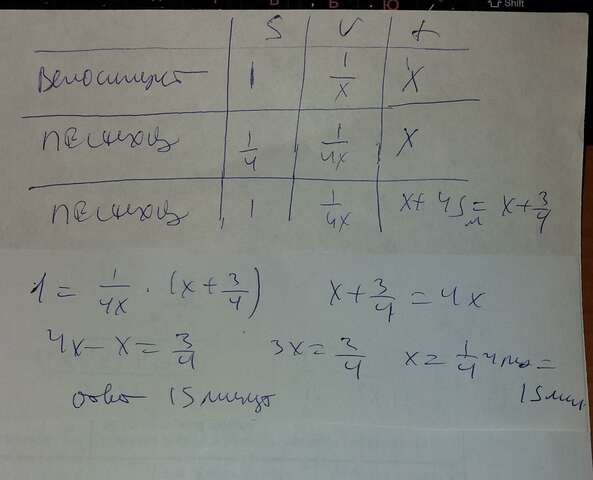 S V t
велосипедист 1 1/x x
пешеход 1/4 1/4x x
пешеход 1 1/4x x+45м = x+3/4
1 = 1/4x · (x+3/4) x+3/4 = 4x
4x-x = 3/4 3x = 3/4 x = 1/4 часа =
15 мин
ответ 15 минут